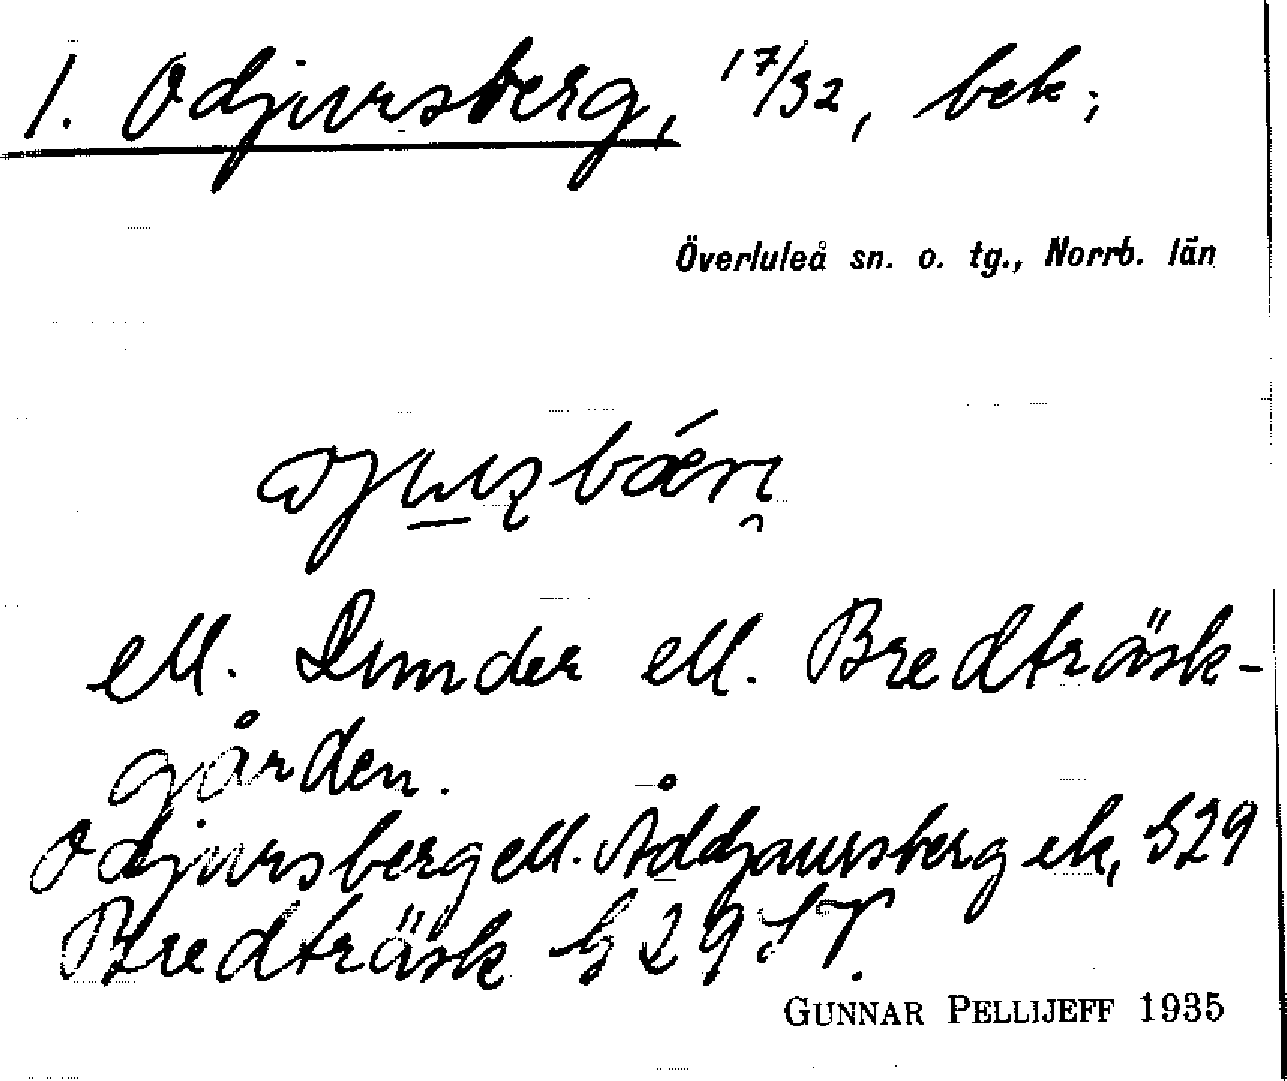 1. Odjursberg, 17/32, bek;
Överluleå sn. o. tg., Norrb. län
ell. Dunder ell. Bredträsk-
gården.
Odjursberg ell. Åddjaursberg ek, G29
Bredträsk G29 ST.
GUNNAR PELLIJEFF 1935